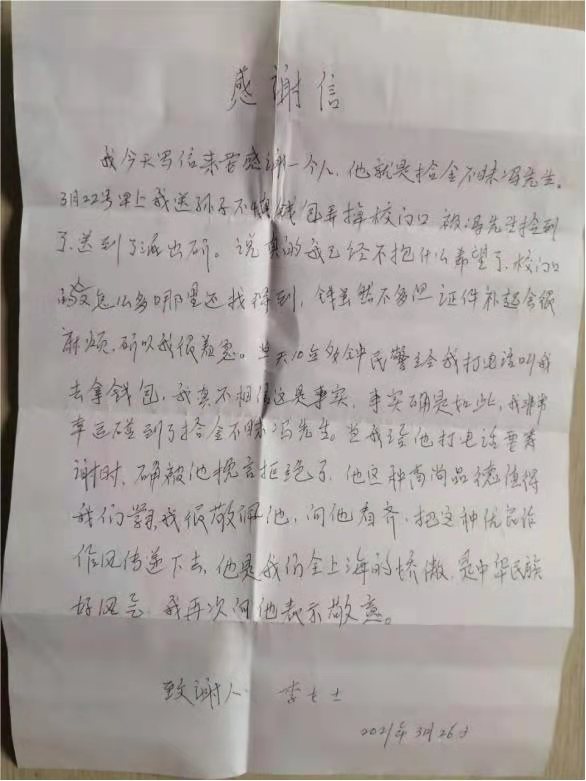 感谢信
我今天写信来要感谢一个人，他就是拾金不昧冯先生。
3月22号早上我送孙子不慎钱包弄掉校门口 被冯先生捡到
了，送到了派出所。说真的我已经不抱什么希望了，校门口
的人怎么多哪里还找得到，钱虽然不多但 证件补起会很
麻烦，所以我很着急。当天10点多钟民警来给我打电话叫我
去拿钱包，我真不相信这是事实，事实确是如此，我非常
幸运碰到了拾金不昧冯先生。当我给他打电话要着
谢时，确被他婉言拒绝了，他这种高尚品德值得
我们学习，我很敬佩他，向他看齐，把这种优良
作风传递下去，他是我们全上海的桥傲，是中华民族
好风气，我再次向他表示敬意。
致谢人 李女士
2021年3月26日